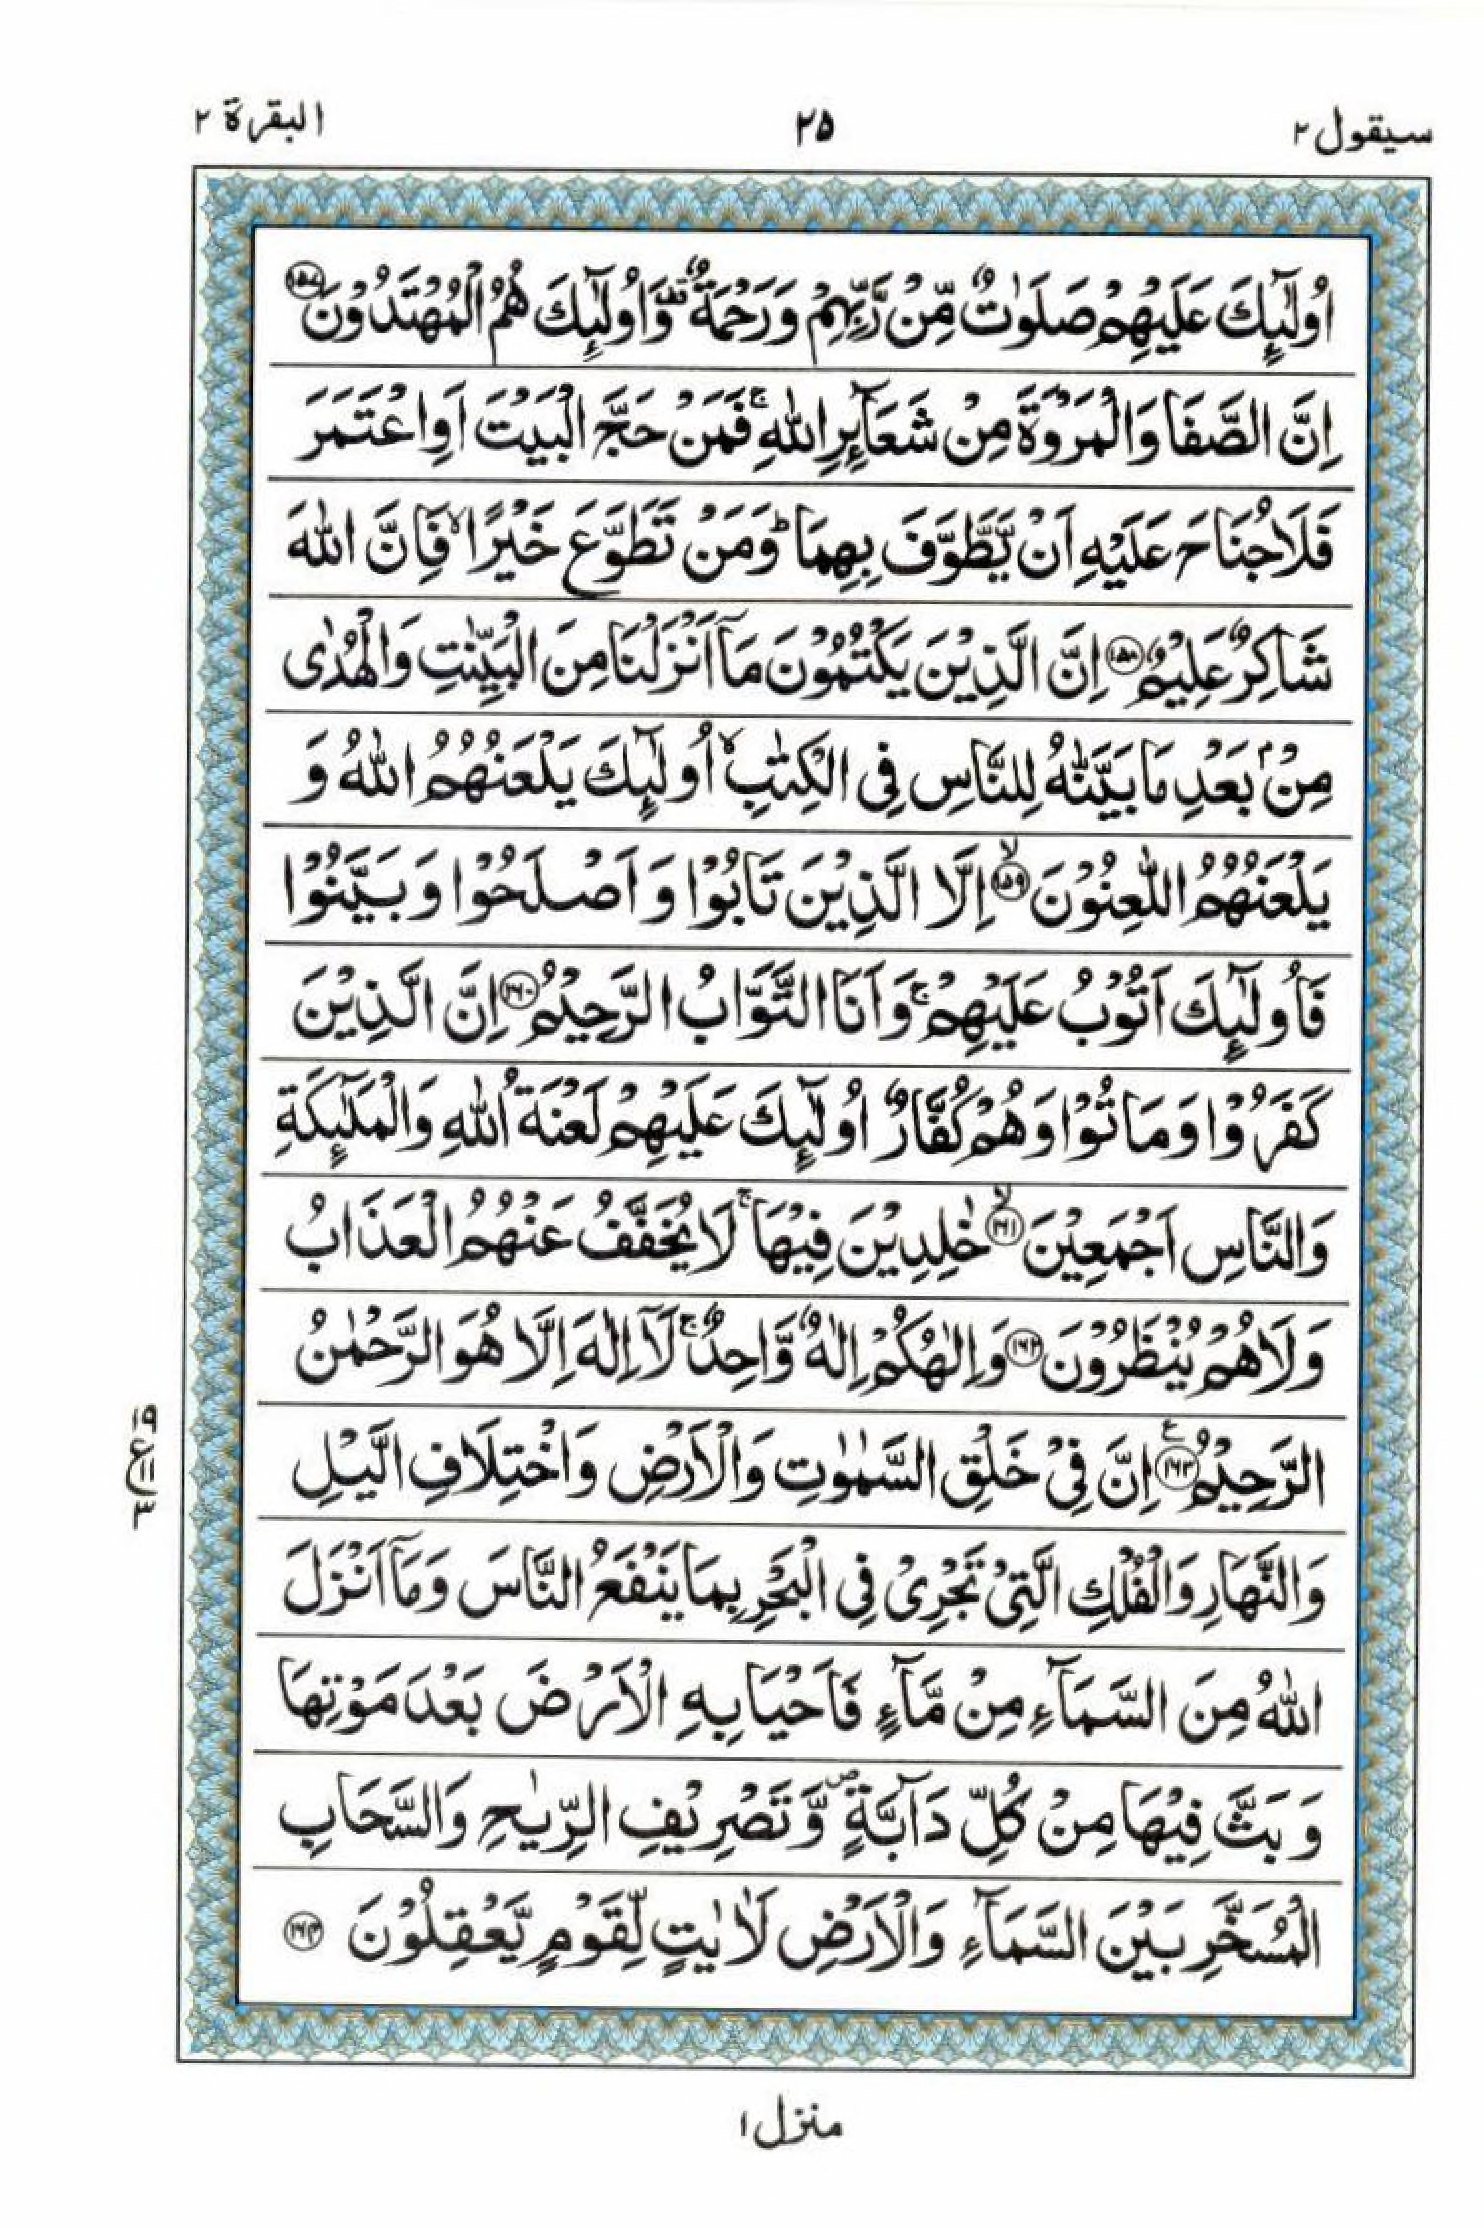 سيقول ٢
٢٥
البقرة ٢
اُولٰٓئِكَ عَلَيْهِمْ صَلَوٰتٌ مِّنْ رَّبِّهِمْ وَرَحْمَةٌ ۫ وَاُولٰٓئِكَ هُمُ الْمُهْتَدُوْنَ ۝١٥٧
اِنَّ الصَّفَا وَالْمَرْوَةَ مِنْ شَعَآئِرِ اللّٰهِ ۚ فَمَنْ حَجَّ الْبَيْتَ اَوِ اعْتَمَرَ
فَلَا جُنَاحَ عَلَيْهِ اَنْ يَّطَّوَّفَ بِهِمَا ؕ وَمَنْ تَطَوَّعَ خَيْرًا ۙ فَاِنَّ اللّٰهَ
شَاكِرٌ عَلِيْمٌ ۝١٥٨ اِنَّ الَّذِيْنَ يَكْتُمُوْنَ مَآ اَنْزَلْنَا مِنَ الْبَيِّنٰتِ وَالْهُدٰى
مِنْۢ بَعْدِ مَا بَيَّنّٰهُ لِلنَّاسِ فِى الْكِتٰبِ ۙ اُولٰٓئِكَ يَلْعَنُهُمُ اللّٰهُ وَ
يَلْعَنُهُمُ اللّٰعِنُوْنَ ۝١٥٩ۙ اِلَّا الَّذِيْنَ تَابُوْا وَاَصْلَحُوْا وَبَيَّنُوْا
فَاُولٰٓئِكَ اَتُوْبُ عَلَيْهِمْ ۚ وَاَنَا التَّوَّابُ الرَّحِيْمُ ۝١٦٠ اِنَّ الَّذِيْنَ
كَفَرُوْا وَمَاتُوْا وَهُمْ كُفَّارٌ اُولٰٓئِكَ عَلَيْهِمْ لَعْنَةُ اللّٰهِ وَالْمَلٰٓئِكَةِ
وَالنَّاسِ اَجْمَعِيْنَ ۝١٦١ۙ خٰلِدِيْنَ فِيْهَا ۚ لَا يُخَفَّفُ عَنْهُمُ الْعَذَابُ
وَلَا هُمْ يُنْظَرُوْنَ ۝١٦٢ وَاِلٰهُكُمْ اِلٰهٌ وَّاحِدٌ ۚ لَآ اِلٰهَ اِلَّا هُوَ الرَّحْمٰنُ
الرَّحِيْمُ ۝١٦٣ع اِنَّ فِيْ خَلْقِ السَّمٰوٰتِ وَالْاَرْضِ وَاخْتِلَافِ الَّيْلِ
وَالنَّهَارِ وَالْفُلْكِ الَّتِيْ تَجْرِيْ فِى الْبَحْرِ بِمَا يَنْفَعُ النَّاسَ وَمَآ اَنْزَلَ
اللّٰهُ مِنَ السَّمَآءِ مِنْ مَّآءٍ فَاَحْيَا بِهِ الْاَرْضَ بَعْدَ مَوْتِهَا
وَبَثَّ فِيْهَا مِنْ كُلِّ دَآبَّةٍ ۪ وَّتَصْرِيْفِ الرِّيٰحِ وَالسَّحَابِ
الْمُسَخَّرِ بَيْنَ السَّمَآءِ وَالْاَرْضِ لَاٰيٰتٍ لِّقَوْمٍ يَّعْقِلُوْنَ ۝١٦٤
١٩
ع ١١
٣
منزل ١